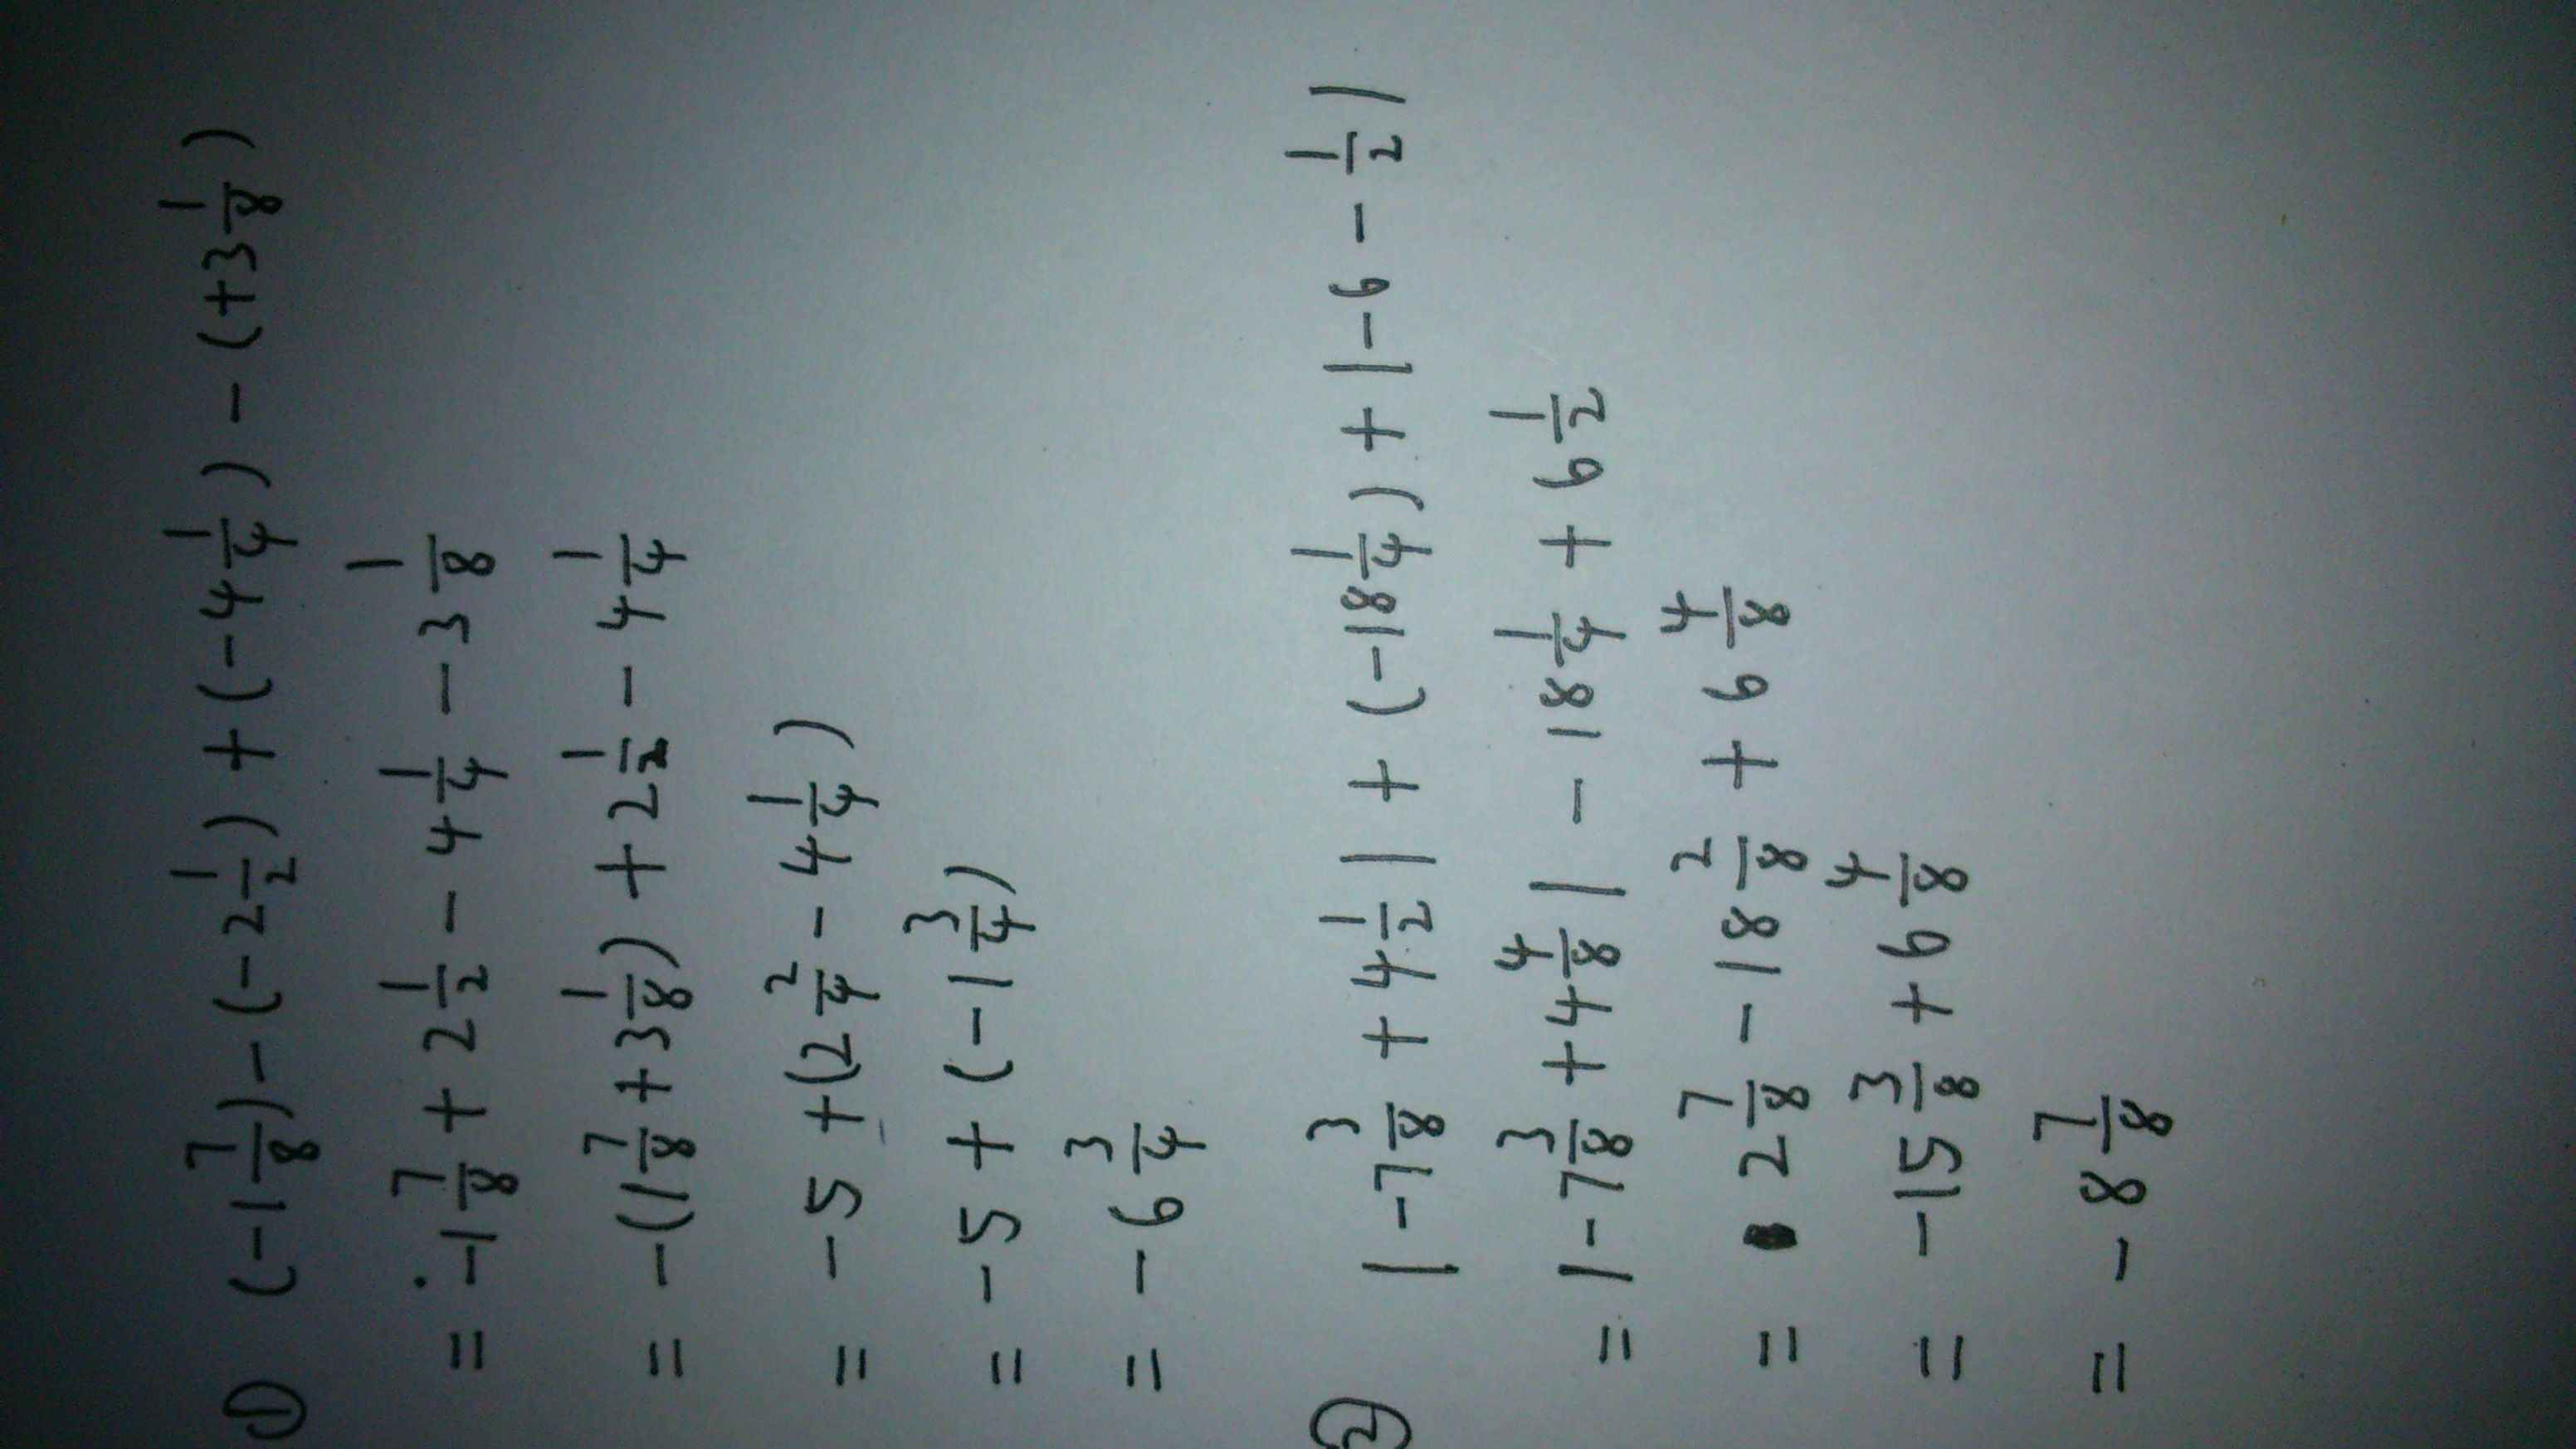 ① (-1 7/8) - (-2 1/2) + (-4 1/4) - (+3 1/8)
= -1 7/8 + 2 1/2 - 4 1/4 - 3 1/8
= -(1 7/8 + 3 1/8) + 2 1/2 - 4 1/4
= -5 + (2 2/4 - 4 1/4)
= -5 + (-1 3/4)
= -6 3/4
② |-7 3/8 + 4 1/2| + (-18 1/4) + |-6 - 1/2|
= |-7 3/8 + 4 4/8| - 18 1/4 + 6 1/2
= 2 7/8 - 18 2/8 + 6 4/8
= -15 3/8 + 6 4/8
= -8 7/8